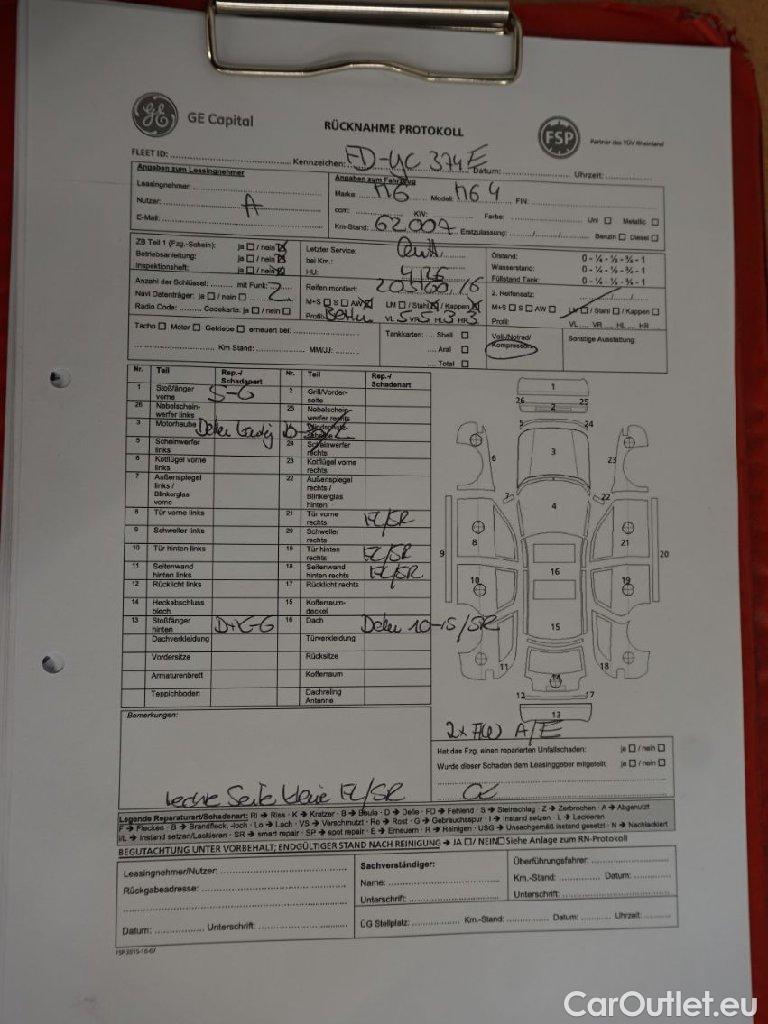 GE Capital
RÜCKNAHME PROTOKOLL
FSP
Partner des TÜV Rheinland
FLEET ID: Kennzeichen: FD-YC 374E Datum: Uhrzeit:
Angaben zum Leasingnehmer
Leasingnehmer:
Nutzer: A
E-Mail:
Angaben zum Fahrzeug
Marke: Modell: FIN:
ccm: KW: Farbe: Uni Metallic
Km-Stand: Erstzulassung: Benzin Diesel
ZB Teil 1 (Fzg.-Schein): ja / nein
Betriebsanleitung: ja / nein
Inspektionsheft: ja / nein
Letzter Service:
bei Km.:
HU:
Ölstand: 0 - ¼ - ½ - ¾ - 1
Wasserstand: 0 - ¼ - ½ - ¾ - 1
Füllstand Tank: 0 - ¼ - ½ - ¾ - 1
Anzahl der Schlüssel: mit Funk: 2
Navi Datenträger: ja / nein
Radio Code: Codekarte: ja / nein
Reifen montiert:
M+S S AW LM / Stahl / Kappen
Profil: VL 5 VR 5 HL 3 HR 3
2. Reifensatz:
M+S S AW LM / Stahl / Kappen
Profil: VL VR HL HR
Tacho Motor Getriebe erneuert bei:
Km Stand: MM/JJ:
Tankkarten: Shell
Aral
Total
Voll-/Notrad/
Kompressor
Sonstige Ausstattung:
Nr. Teil Rep.-/ Schadenart Nr. Teil Rep.-/ Schadenart
1 Stoßfänger vorne S-G Grill/Vorder- seite
26 Nebelschein- werfer links 25 Nebelschein- werfer rechts
3 Motorhaube
5 Scheinwerfer links 24 Scheinwerfer rechts
6 Kotflügel vorne links 23 Kotflügel vorne rechts
7 Außenspiegel links / Blinkerglas vorne 22 Außenspiegel rechts / Blinkerglas hinten
8 Tür vorne links 21 Tür vorne rechts FL/SR
9 Schweller links 20 Schweller rechts
10 Tür hinten links 19 Tür hinten rechts FL/SR
11 Seitenwand hinten links 18 Seitenwand hinten rechts FL/SR
12 Rücklicht links 17 Rücklicht rechts
14 Heckabschluss blech 15 Kofferraum- deckel
13 Stoßfänger hinten D+K-G 16 Dach Dellen 10-15/SR
Dachverkleidung Türverkleidung
Vordersitze Rücksitze
Armaturenbrett Kofferraum
Teppichboden Dachreling Antenne
1
26 25
2
5 24
3
6 23
7 22
4
8 21
9 20
16
10 19
15
11 18
14
12 17
13
Bemerkungen:
rechte Seite kleine FL/SR
A/E
Hat das Fzg. einen reparierten Unfallschaden: ja / nein
Wurde dieser Schaden dem Leasinggeber mitgeteilt ja / nein
Legende Reparaturart/Schadenart: RI → Riss · K → Kratzer · B → Beule · D → Delle · FD → Fehlend · S → Steinschlag · Z → Zerbrochen · A → Abgenutzt
F → Flecken · B → Brandfleck, -loch · Lo → Loch · VS → Verschmutzt · Ro → Rost · G → Gebrauchsspur · I → Instand setzen · L → Lackieren
I/L → Instand setzen/Lackieren · SR → smart repair · SP → spot repair · E → Erneuern · R → Reinigen · USG → Unsachgemäß instand gesetzt · N → Nachlackiert
BEGUTACHTUNG UNTER VORBEHALT; ENDGÜLTIGER STAND NACH REINIGUNG → JA / NEIN Siehe Anlage zum RN-Protokoll
Leasingnehmer/Nutzer:
Rückgabeadresse:
Datum: Unterschrift:
Sachverständiger:
Name:
Unterschrift:
Überführungsfahrer:
Km.-Stand: Datum:
Unterschrift:
ÜG Stellplatz: Km.-Stand: Datum: Uhrzeit:
CarOutlet.eu